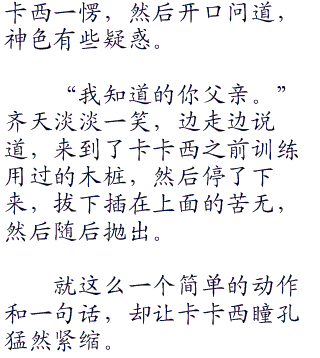 卡西一愣，然后开口问道，
神色有些疑惑。
“我知道的你父亲。”
齐天淡淡一笑，边走边说
道，来到了卡卡西之前训练
用过的木桩，然后停了下
来，拔下插在上面的苦无，
然后随后抛出。
就这么一个简单的动作
和一句话，却让卡卡西瞳孔
猛然紧缩。